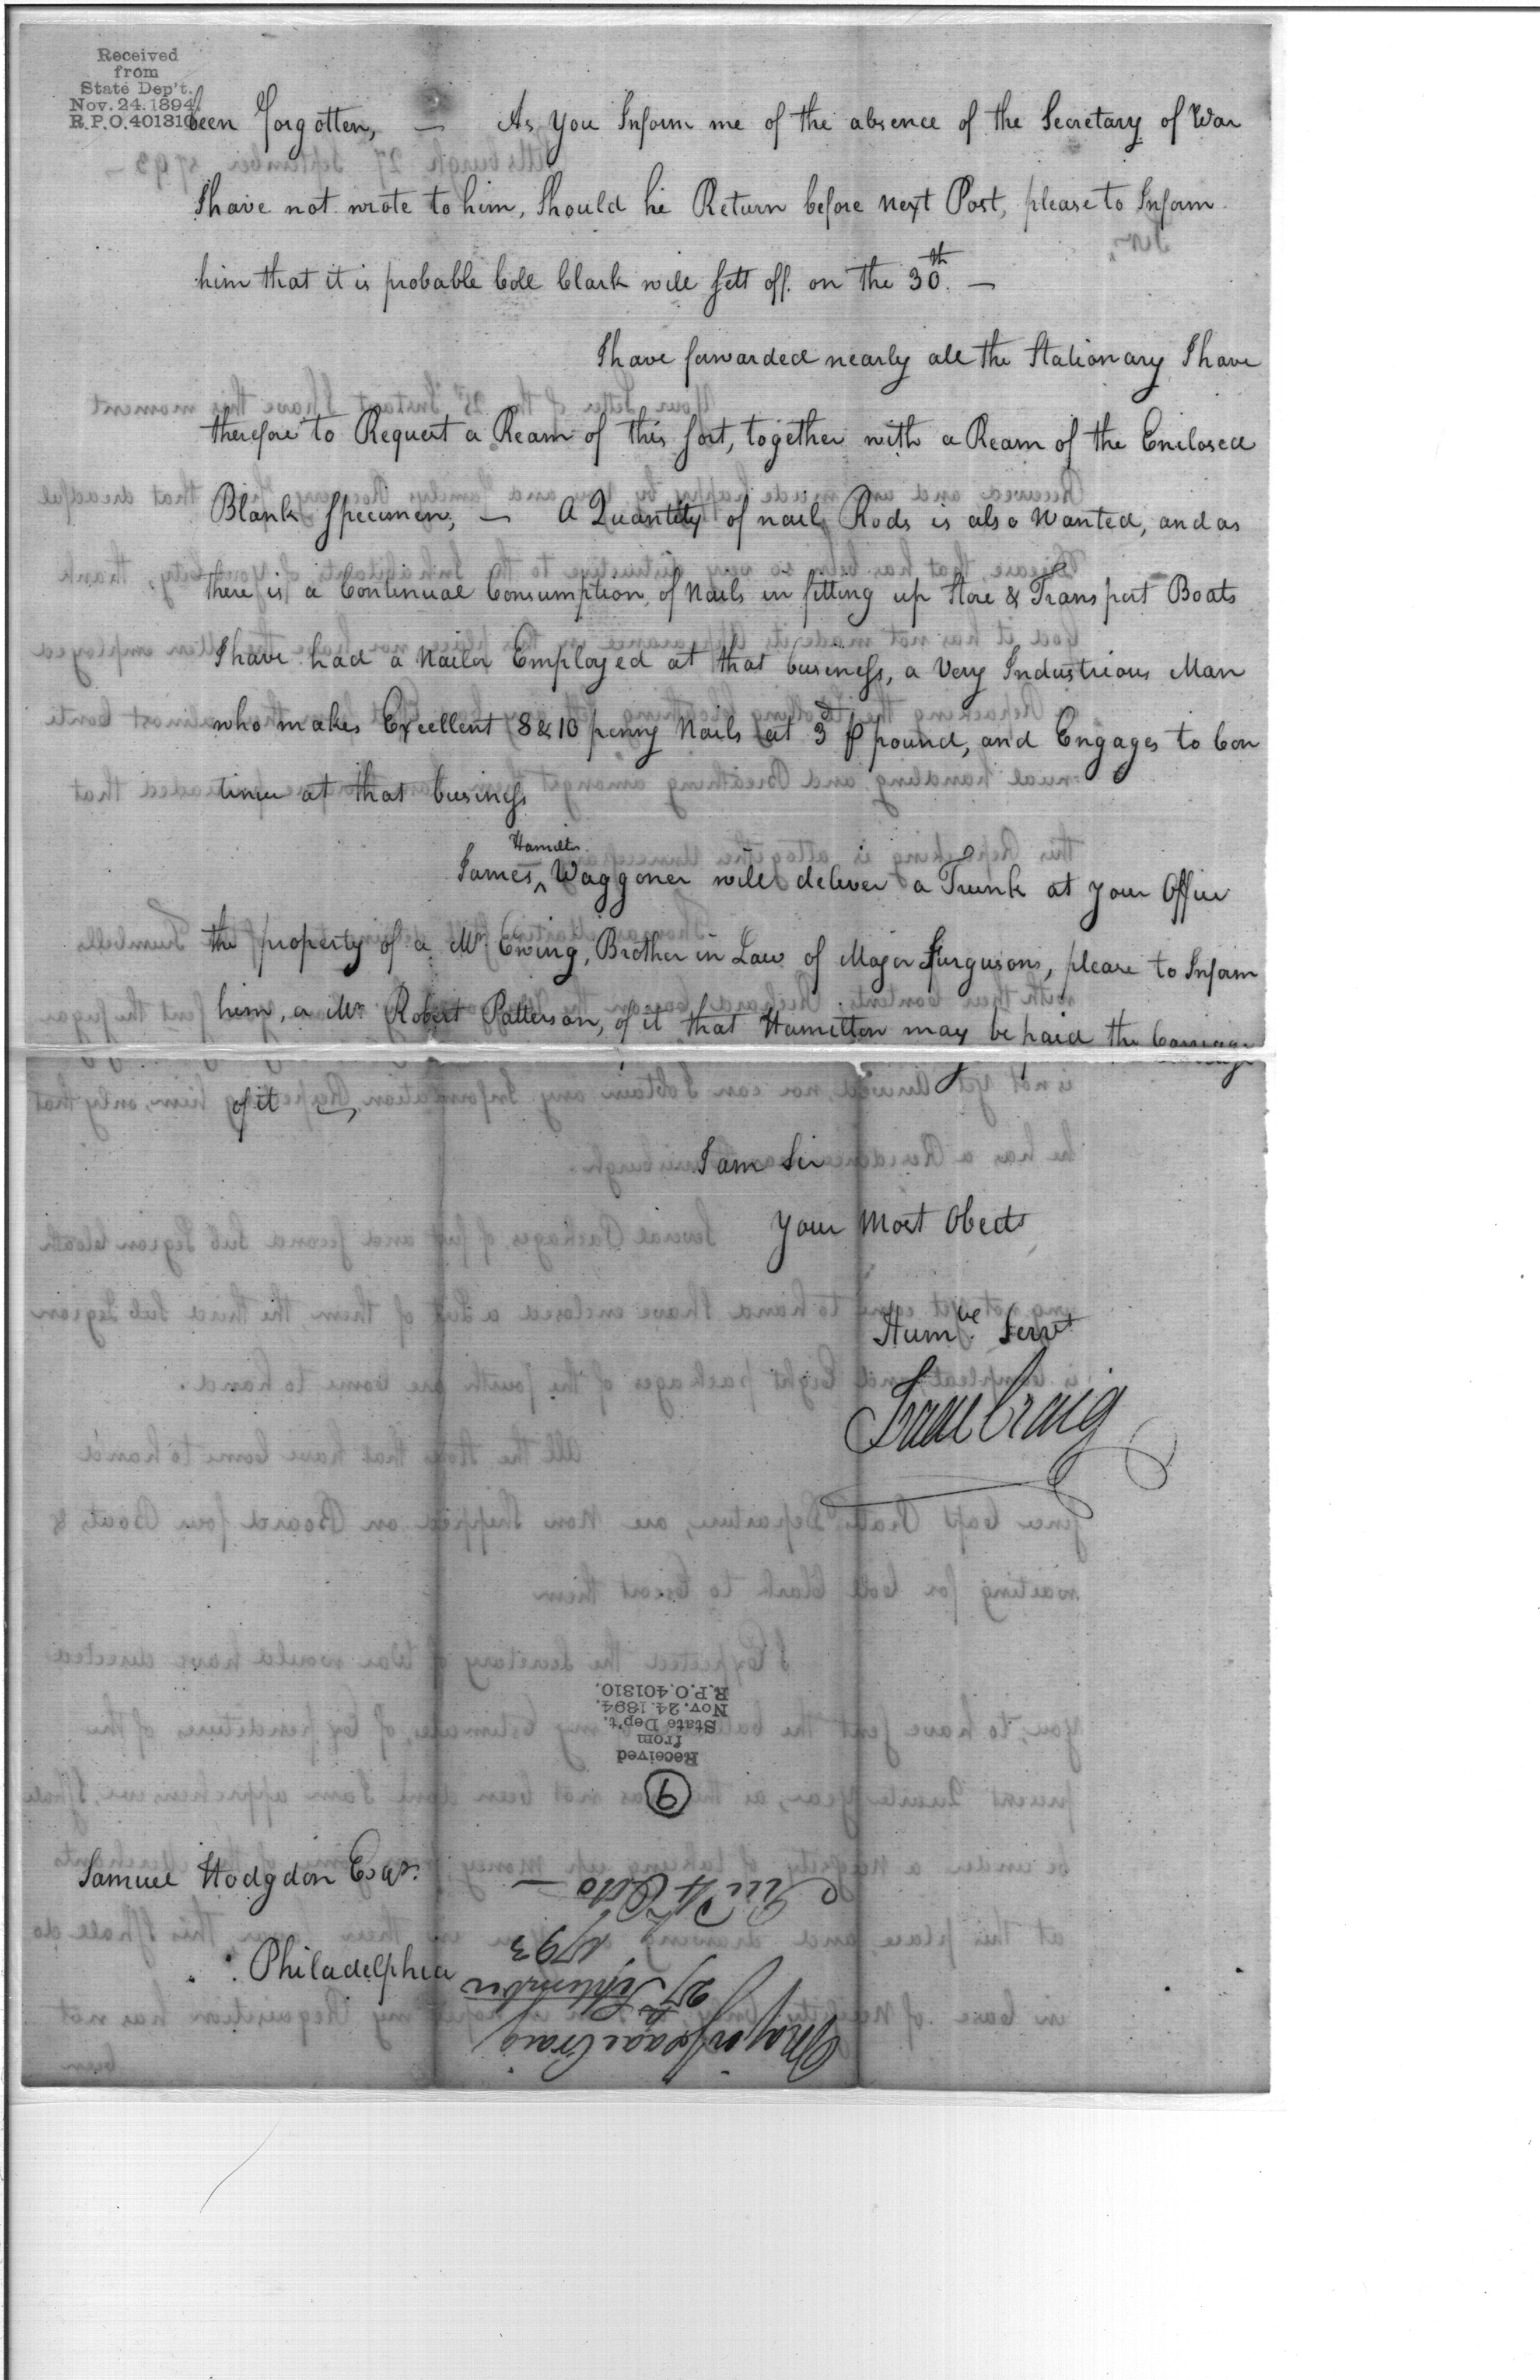 Received
from
State Dep't.
Nov. 24. 1894.
R.P.O. 401310
been forgotten, — As you Inform me of the absence of the Secretary of War
I have not wrote to him, Should he Return before next Post, please to Inform
him that it is probable Coll Clark will sett off on the 30th. —
I have forwarded nearly all the Stationary I have
therefore to Request a Ream of this sort, together with a Ream of the Enclosed
Blank Specimen, — A Quantity of nail Rods is also wanted, and as
there is a Continual Consumption of Nails in fitting up Store & Transport Boats
I have had a Nailor Employed at that business, a Very Industrious Man
who makes Excellent 8 & 10 penny Nails at 3d ⅌ pound, and Engages to Con
tinue at that business
James ^Hamilton Waggoner will deliver a Trunk at your Office
the property of a Mr. Ewing, Brother in Law of Major Furgusons, please to Inform
him, a Mr. Robert Patterson, of it that Hamilton may be paid the Carriage
of it —
I am Sir
Your Most Obedt
Humble Servt
Isaac Craig
Samuel Hodgdon Esqr.
Philadelphia
Major Isaac Craig
27th September
1793
Octo —
9
Received
from
State Dep't.
Nov. 24. 1894.
R.P.O. 401310.